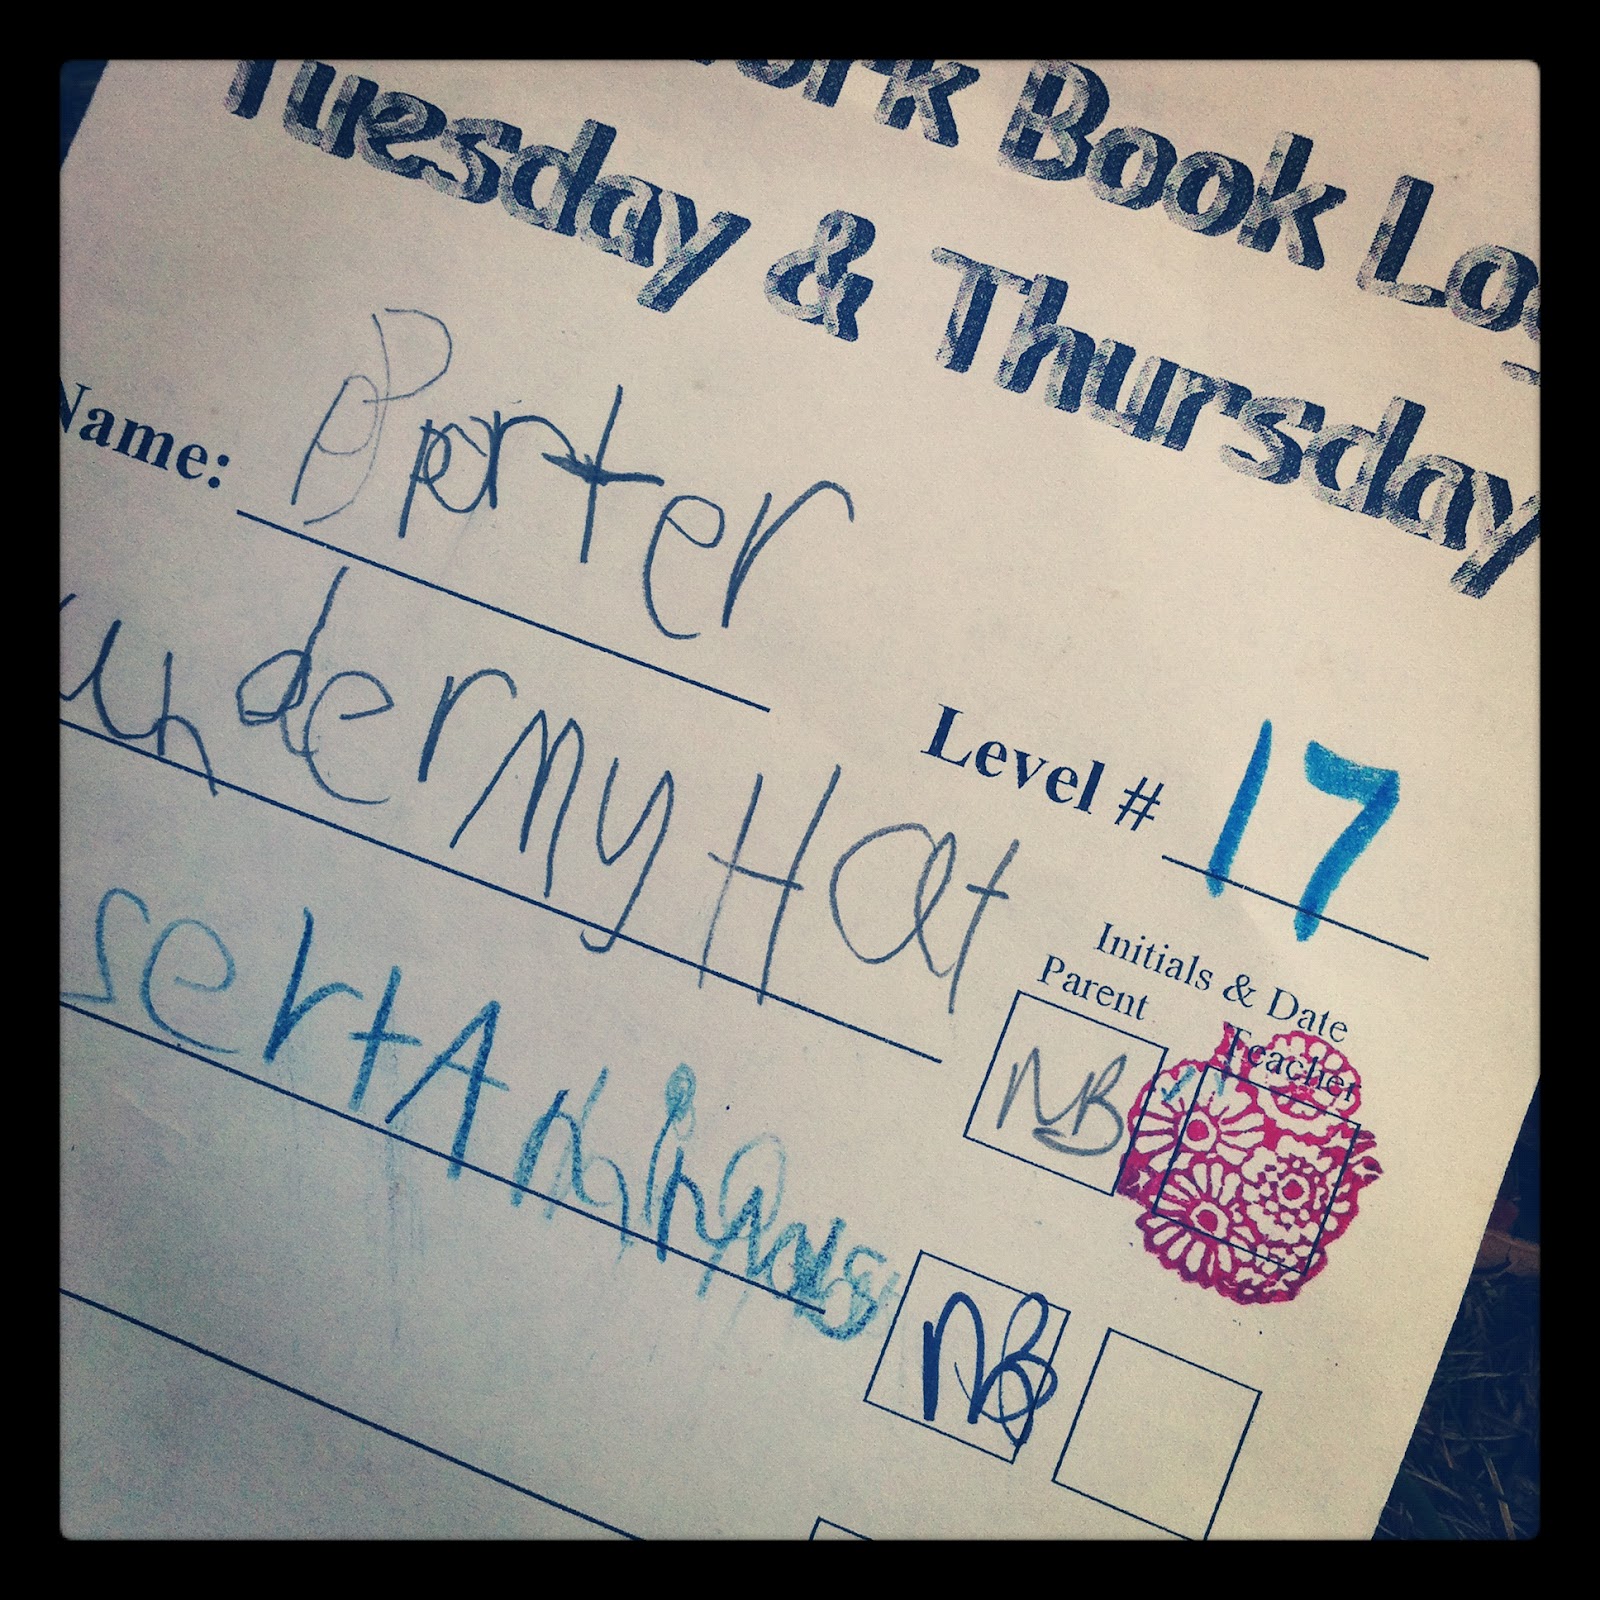 ork Book Log
Tuesday & Thursday
Name: Porter
under My Hat
Level # 17
Initials & Date
Parent Teacher
NB
sert Animals
NB